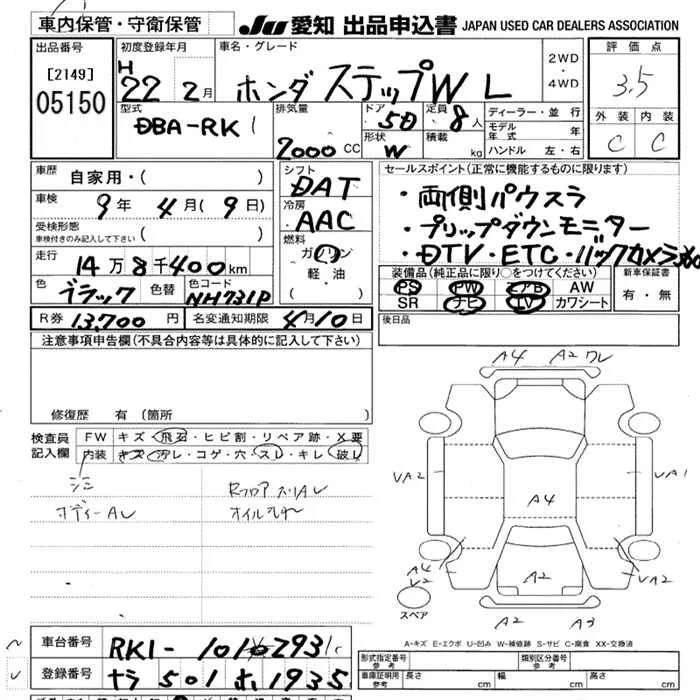 車内保管・守衛保管
JU 愛知 出品申込書 JAPAN USED CAR DEALERS ASSOCIATION
出品番号
[2149]
05150
初度登録年月
H 22 2月
車名・グレード
ホンダ ステップW L
2WD
・
4WD
評価点
3.5
外装 内装
C C
型式
DBA-RK1
排気量
2000 CC
ドア 5D
形状 W
定員 8人
積載 kg
ディーラー・並行
モデル年式 年
ハンドル 左・右
車歴 自家用・( )
車検 9年 4月(9日)
受検形態
車検付きのみ記入して下さい ( )
走行 14万8千400km
色 ブラック 色替 色コード NH731P
シフト
DAT
冷房
AAC
燃料
ガソリン
軽油
( )
セールスポイント(正常に機能するものに限ります)
・両側パワスラ
・フリップダウンモニター
・DTV・ETC・バックカメラ
装備品(純正品に限り○をつけてください)
PS PW エアB AW
SR ナビ TV カワシート
新車保証書
有・無
R券 13,700円 名変通知期限 4月10日
後日品
注意事項申告欄(不具合内容等は具体的に記入して下さい)
修復歴 有(箇所 )
検査員記入欄
FW キズ・飛石・ヒビ割・リペア跡・X要
内装 キズ・汚レ・コゲ・穴・スレ・キレ・破レ
シミ
ボディーAU
オイル
A4 A2 ワレ
VA2
VA1
A4
A4
V2
A2
VA2
スペア
A2
A3
A-キズ E-エクボ U-凹み W-補修跡 S-サビ C-腐食 XX-交換済
車台番号 RK1-1010293
登録番号 501 ホ 1935
形式指定番号 参考
類別区分番号 参考
車庫証明用 参考 長さ cm 幅 cm 高さ cm